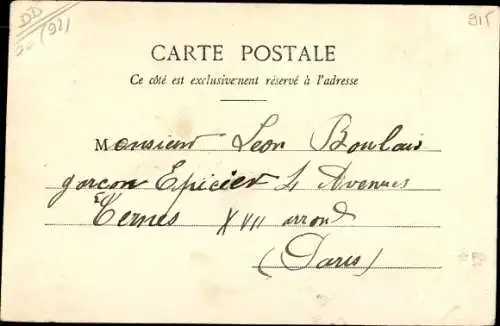 DD
(92)
915
CARTE POSTALE
Ce côté est exclusivement réservé à l'adresse
Monsieur Léon Boulais
garçon Epicier 4 Avenues
Ternes XVII arrond
(Paris)